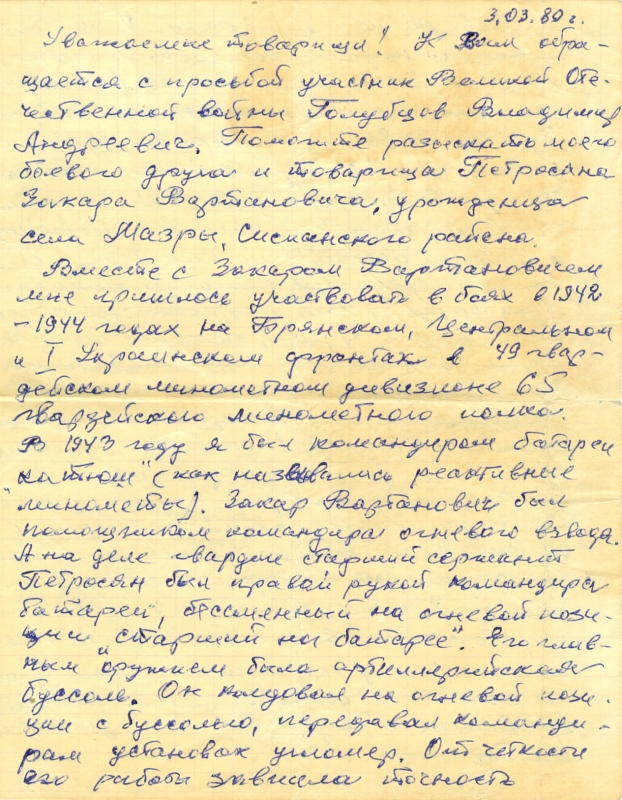 3.03.80 г.
Уважаемые товарищи! К Вам обра-
щается с просьбой участник Великой Оте-
чественной войны Голубцов Владимир
Андреевич. Помогите разыскать моего
боевого друга и товарища Петросяна
Закара Вартановича, уроженца
села Мазры, Сисианского района.
Вместе с Закаром Вартановичем
мне пришлось участвовать в боях в 1942
-1944 годах на Брянском, Центральном
и I Украинском фронтах в 49 гвар-
дейском минометном дивизионе 65
гвардейского минометного полка.
В 1943 году я был командиром батареи
"катюш" (как назывались реактивные
минометы). Закар Вартанович был
помощником командира огневого взвода.
А на деле гвардии старший сержант
Петросян был правой рукой командира
батареи, бессменный на огневой пози-
ции "старший на батарее". Его глав-
ным оружием была артиллерийская
буссоль. Он колдовал на огневой пози-
ции с буссолью, передавал команди-
рам установок угломер. От четкости
его работы зависила точность